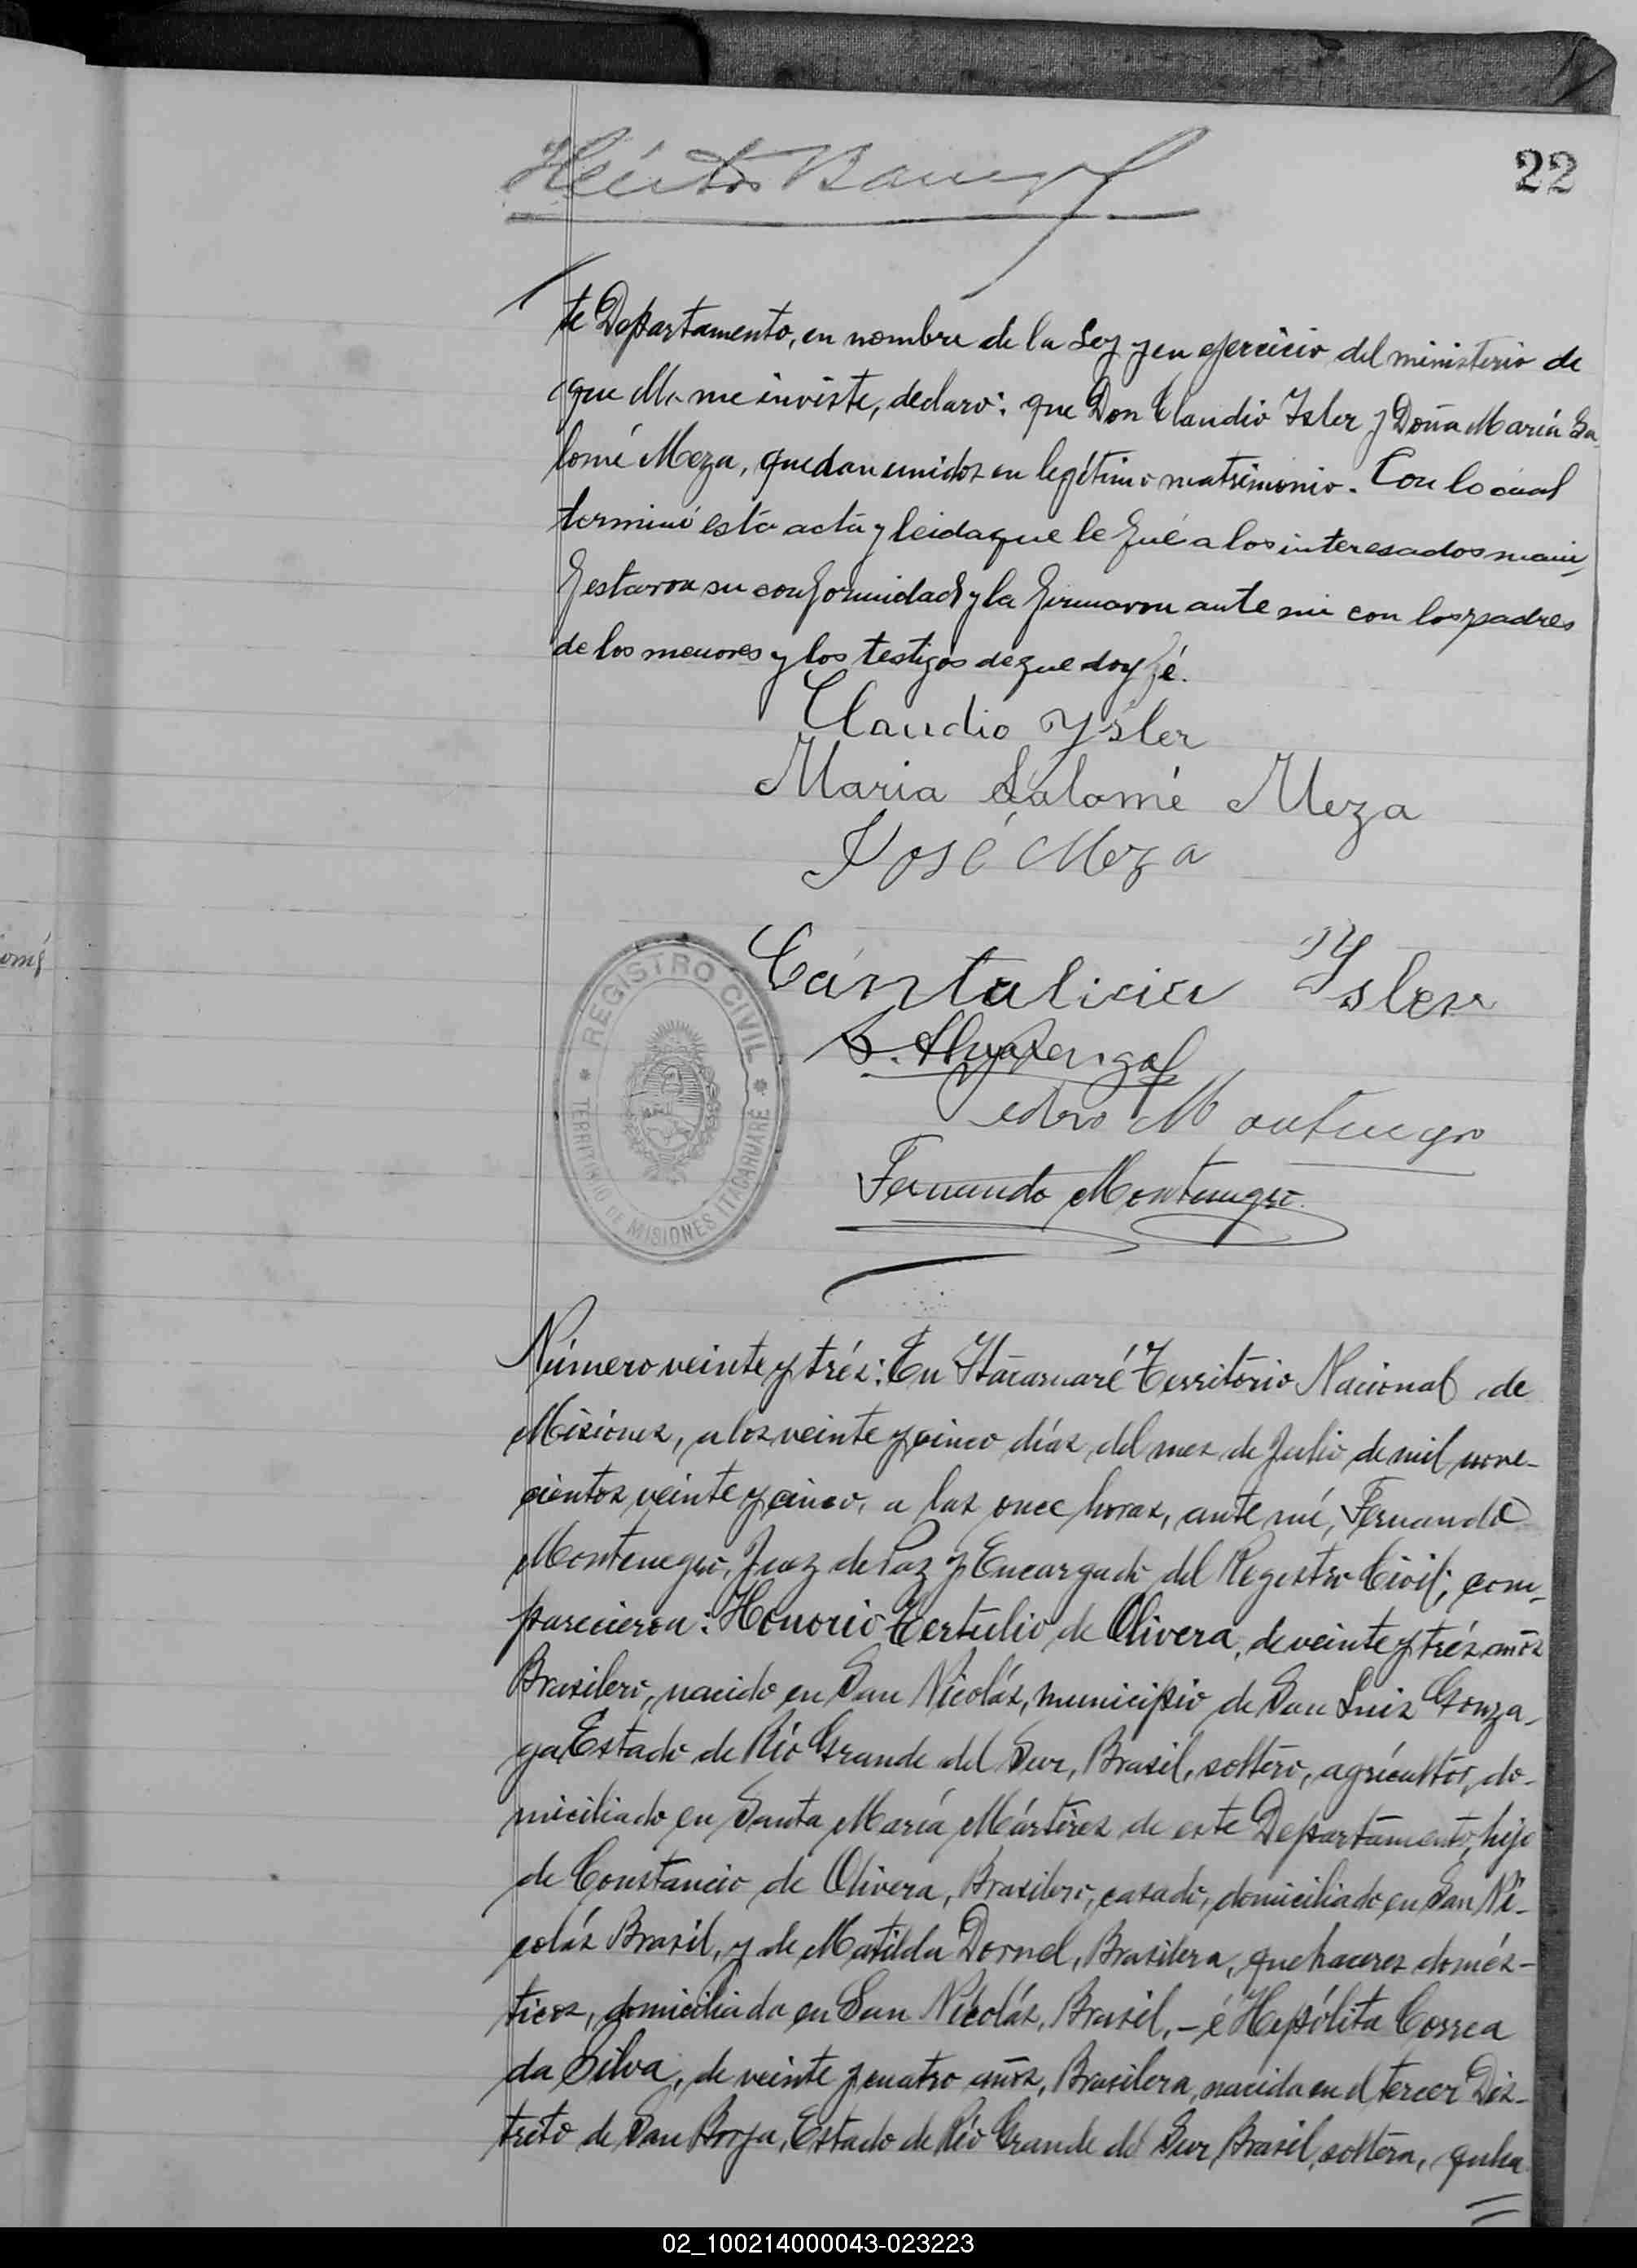 22
te Departamento, en nombre de la Ley y en ejercicio del ministerio de
que me inviste, declaro: que Don Claudio Isler y Doña María Sa-
lomé Meza, quedan unidos en legítimo matrimonio. Con lo cual
terminó esta acta y leida que le fué a los interesados mani-
festaron su conformidad y la firmaron ante mi con los padres
de los menores y los testigos de que doy fé.
Claudio Ysler
Maria Salomé Meza
José Meza
Cantalicia Ysler
Pedro Montenegro
Fernando Montenegro
REGISTRO CIVIL
TERRITORIO DE MISIONES ITACARUARÉ
Número veinte y trés: En Itacaruaré Territorio Nacional de
Misiónes, a los veinte y cinco días del mes de Julio de mil nove-
cientos veinte y cinco, a las once horas, ante mí, Fernando
Montenegro, Juez de Paz y Encargado del Registro Civil; com-
parecieron: Honorio Tertulio de Olivera, de veinte y trés años
Brasilero, nacido en San Nicolás, municipio de San Luis Gonza-
ga, Estado de Río Grande del Sur, Brasil, soltero, agricultor, do-
miciliado en Santa María Mártires de este Departamento, hijo
de Constancio de Olivera, Brasilero, casado, domiciliado en San Ni-
colás Brasil, y de Matilda Dornel, Brasilera, quehaceres domés-
ticos, domiciliada en San Nicolás, Brasil, - é Hepólita Correa
da Silva, de veinte y cuatro años, Brasilera, nacida en el tercer Dis-
trito de San Borja, Estado de Río Grande del Sur Brasil, soltera, queha
02_100214000043-023223